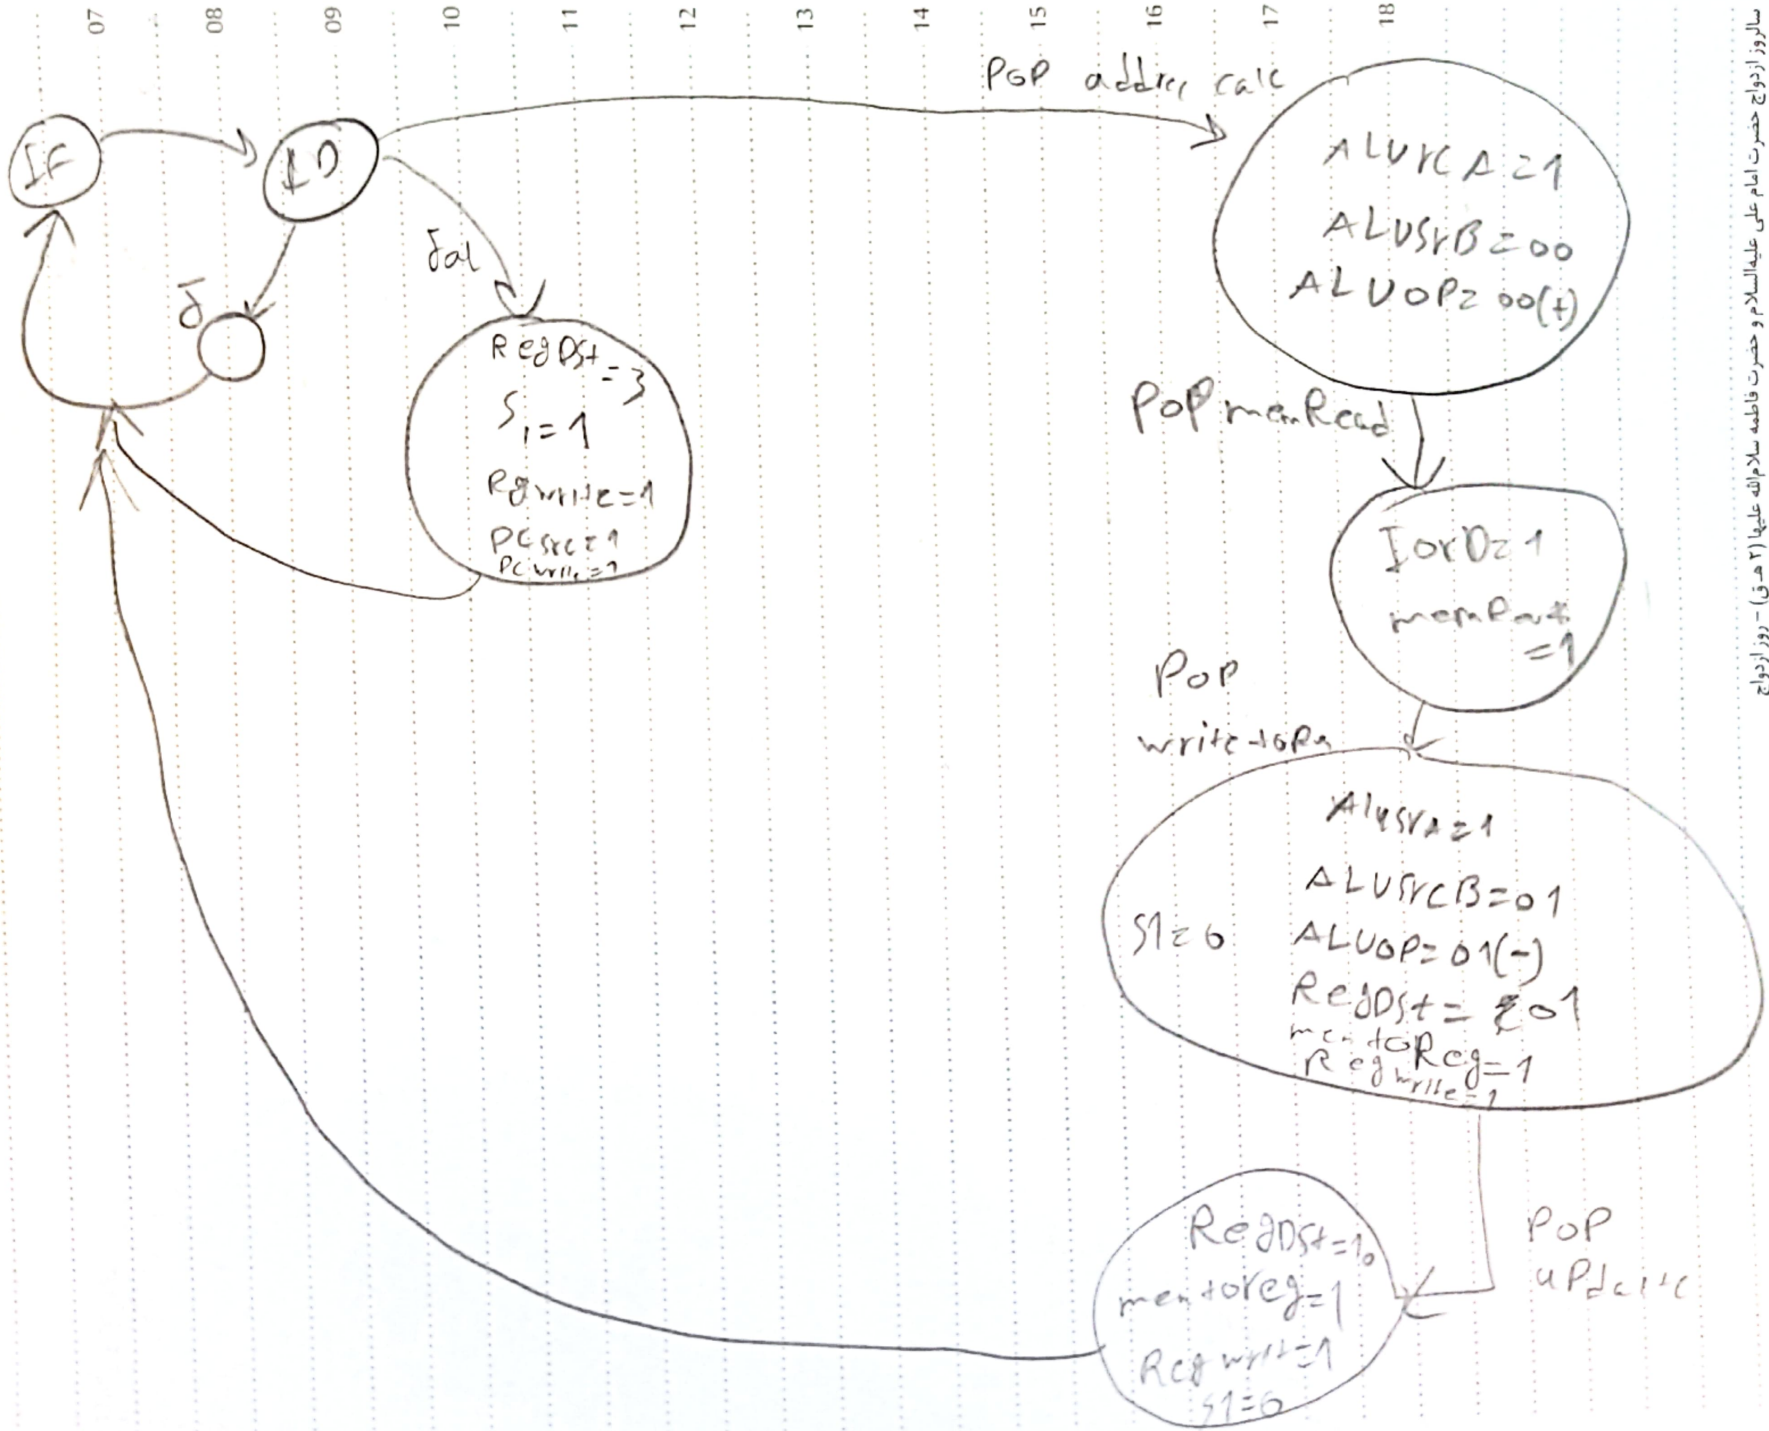 07
08
09
10
11
12
13
14
15
16
17
18
سالروز ازدواج حضرت امام علی علیه‌السلام و حضرت فاطمه سلام‌الله علیها (۲ هـ ق) - روز ازدواج
POP addres calc
IF
ID
J
Jal
RegDst
=3
S1=1
Rgwrite=1
PCsrc=1
PCwrite=1
ALUrcA=1
ALUSrB=00
ALUOP=00(+)
POP memRead
IorD=1
=1
POP
write to Rn
AlusrA=1
ALUSrcB=01
S1=0
ALUOP=01(-)
RegDst=01
memtoReg=1
Regwrite=1
POP
update
RegDst=10
memtoreg=1
Reg writ=1
S1=0